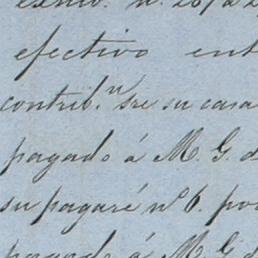 efectivo ent
contrib.n sre su casa
pagado á M. G. d
su pagaré nº 6. po
pagado á M. G. d